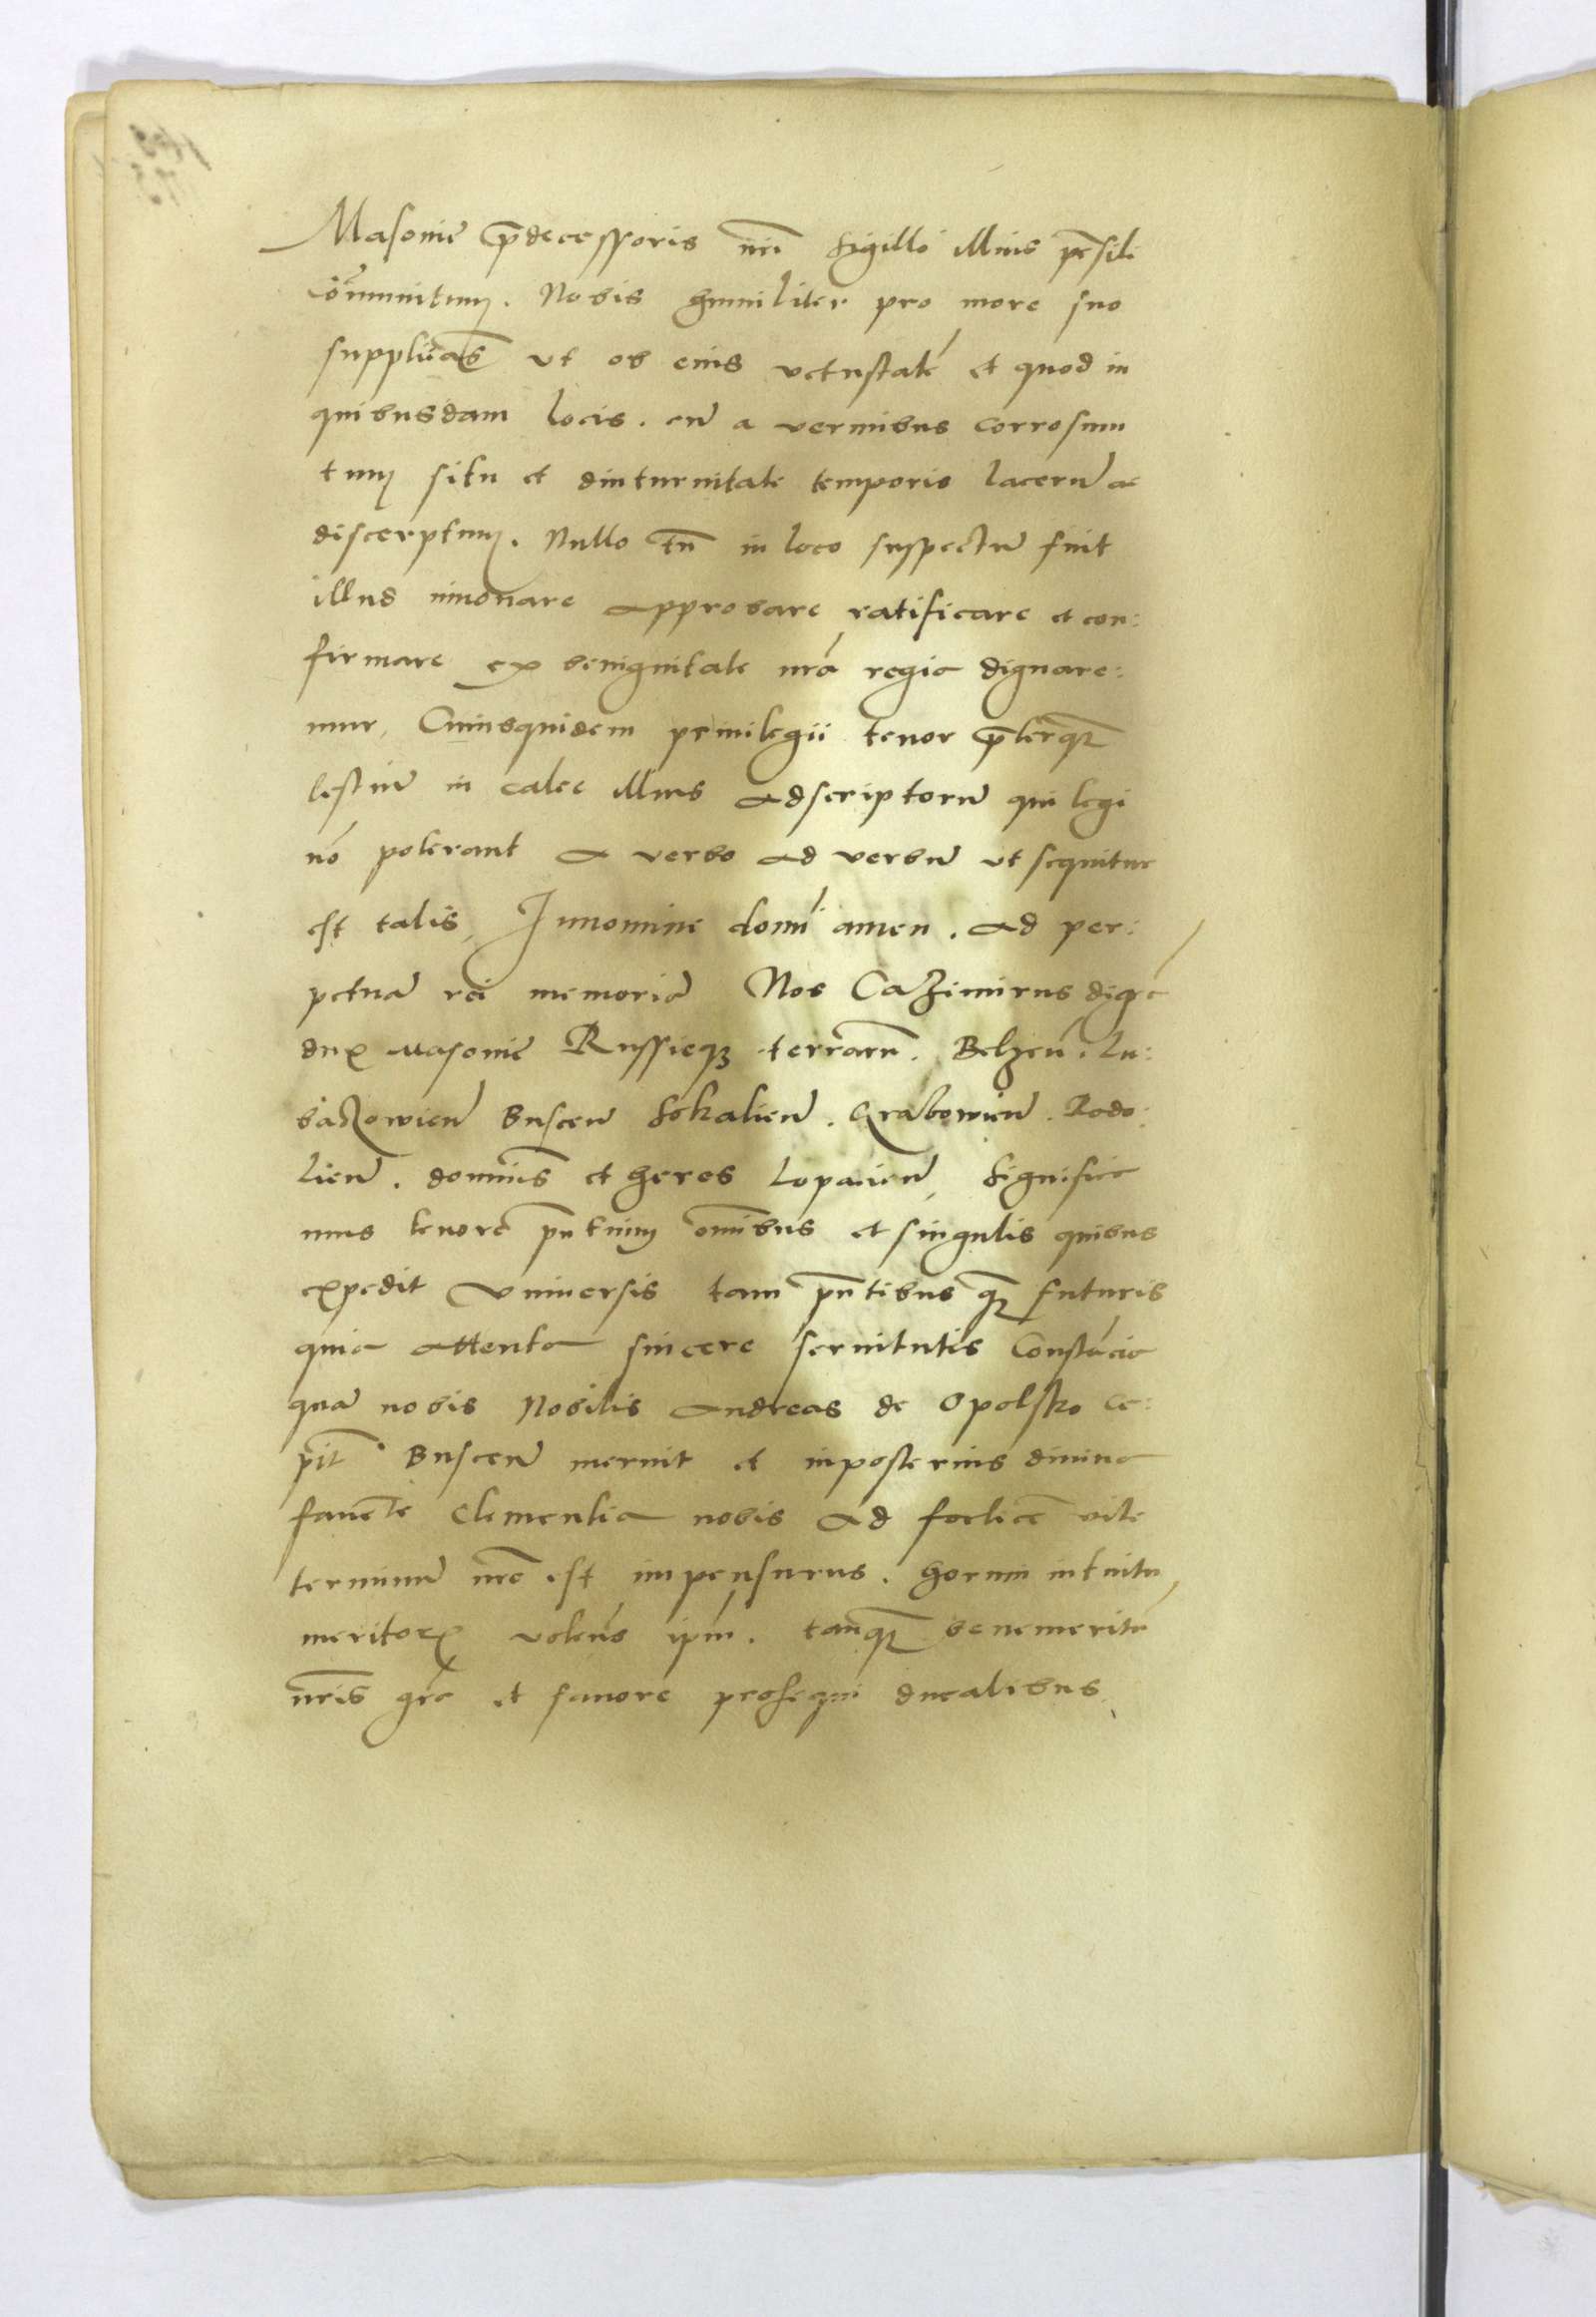 Masovie p̄decessoris nr̄i sigillo illius pensili
com̄munitum. Nobis humiliter pro more suo
supplicas̄ ut ob eius vetustatē et quod in
quibusdam locis. cū a vermibus corrosum
tum situ et diuturnitate temporis lacerū ac
discerptum. Nullo tn̄ in loco suspectū fuit
illud innovare approbare ratificare et con:
firmare ex benignitate nrā regia dignare:
mur, Cuiusquidem privilegii tenor p̄terquā
testiū in calce illius adscriptorū qui legi
nō poterant a verbo ad verbū ut sequitur
est talis, Innomine domī amen. ad per:
petuā rei memoriā Nos Cazimirus dei grā
dux Masovie Russieq3 terrarū. Belzeñ. Lu:
baczowieñ Busceñ Sokalieñ. Grabowieñ. Lodo:
lieñ. dominus et heres Lopatieñ, Significa
mus tenore pn̄tium omībus et singulis quibus
expedit universis tam pn̄tibus q̄ futuris
quia attenta sincere servitutis Constācia
quā nobis Nobilis Andreas de Opolsko Ca:
pit̄ Busceñ meruit et inposterius divina
favēte clementia nobis ad foelicē vite
terminū nr̄e est impensurus. horum intuitu
meritor̄ volen̄s ip̄m. tanq̄ benemeritū
nr̄is grā et favore prosequi ducalibus.